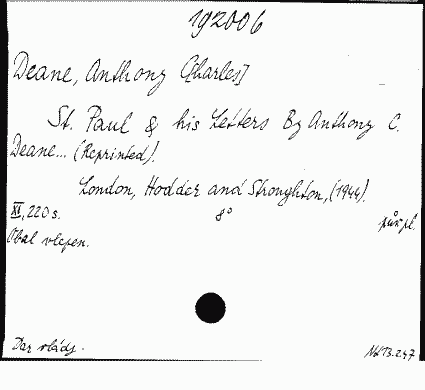 192006
Deane, Anthony C[harles]
St. Paul & his Letters By Anthony C.
Deane... (Reprinted).
London, Hodder and Stoughton, (1944).
XI, 220 s. 8° půl.pl.
Obal vlepen.
Dar vlády. NL T3.247